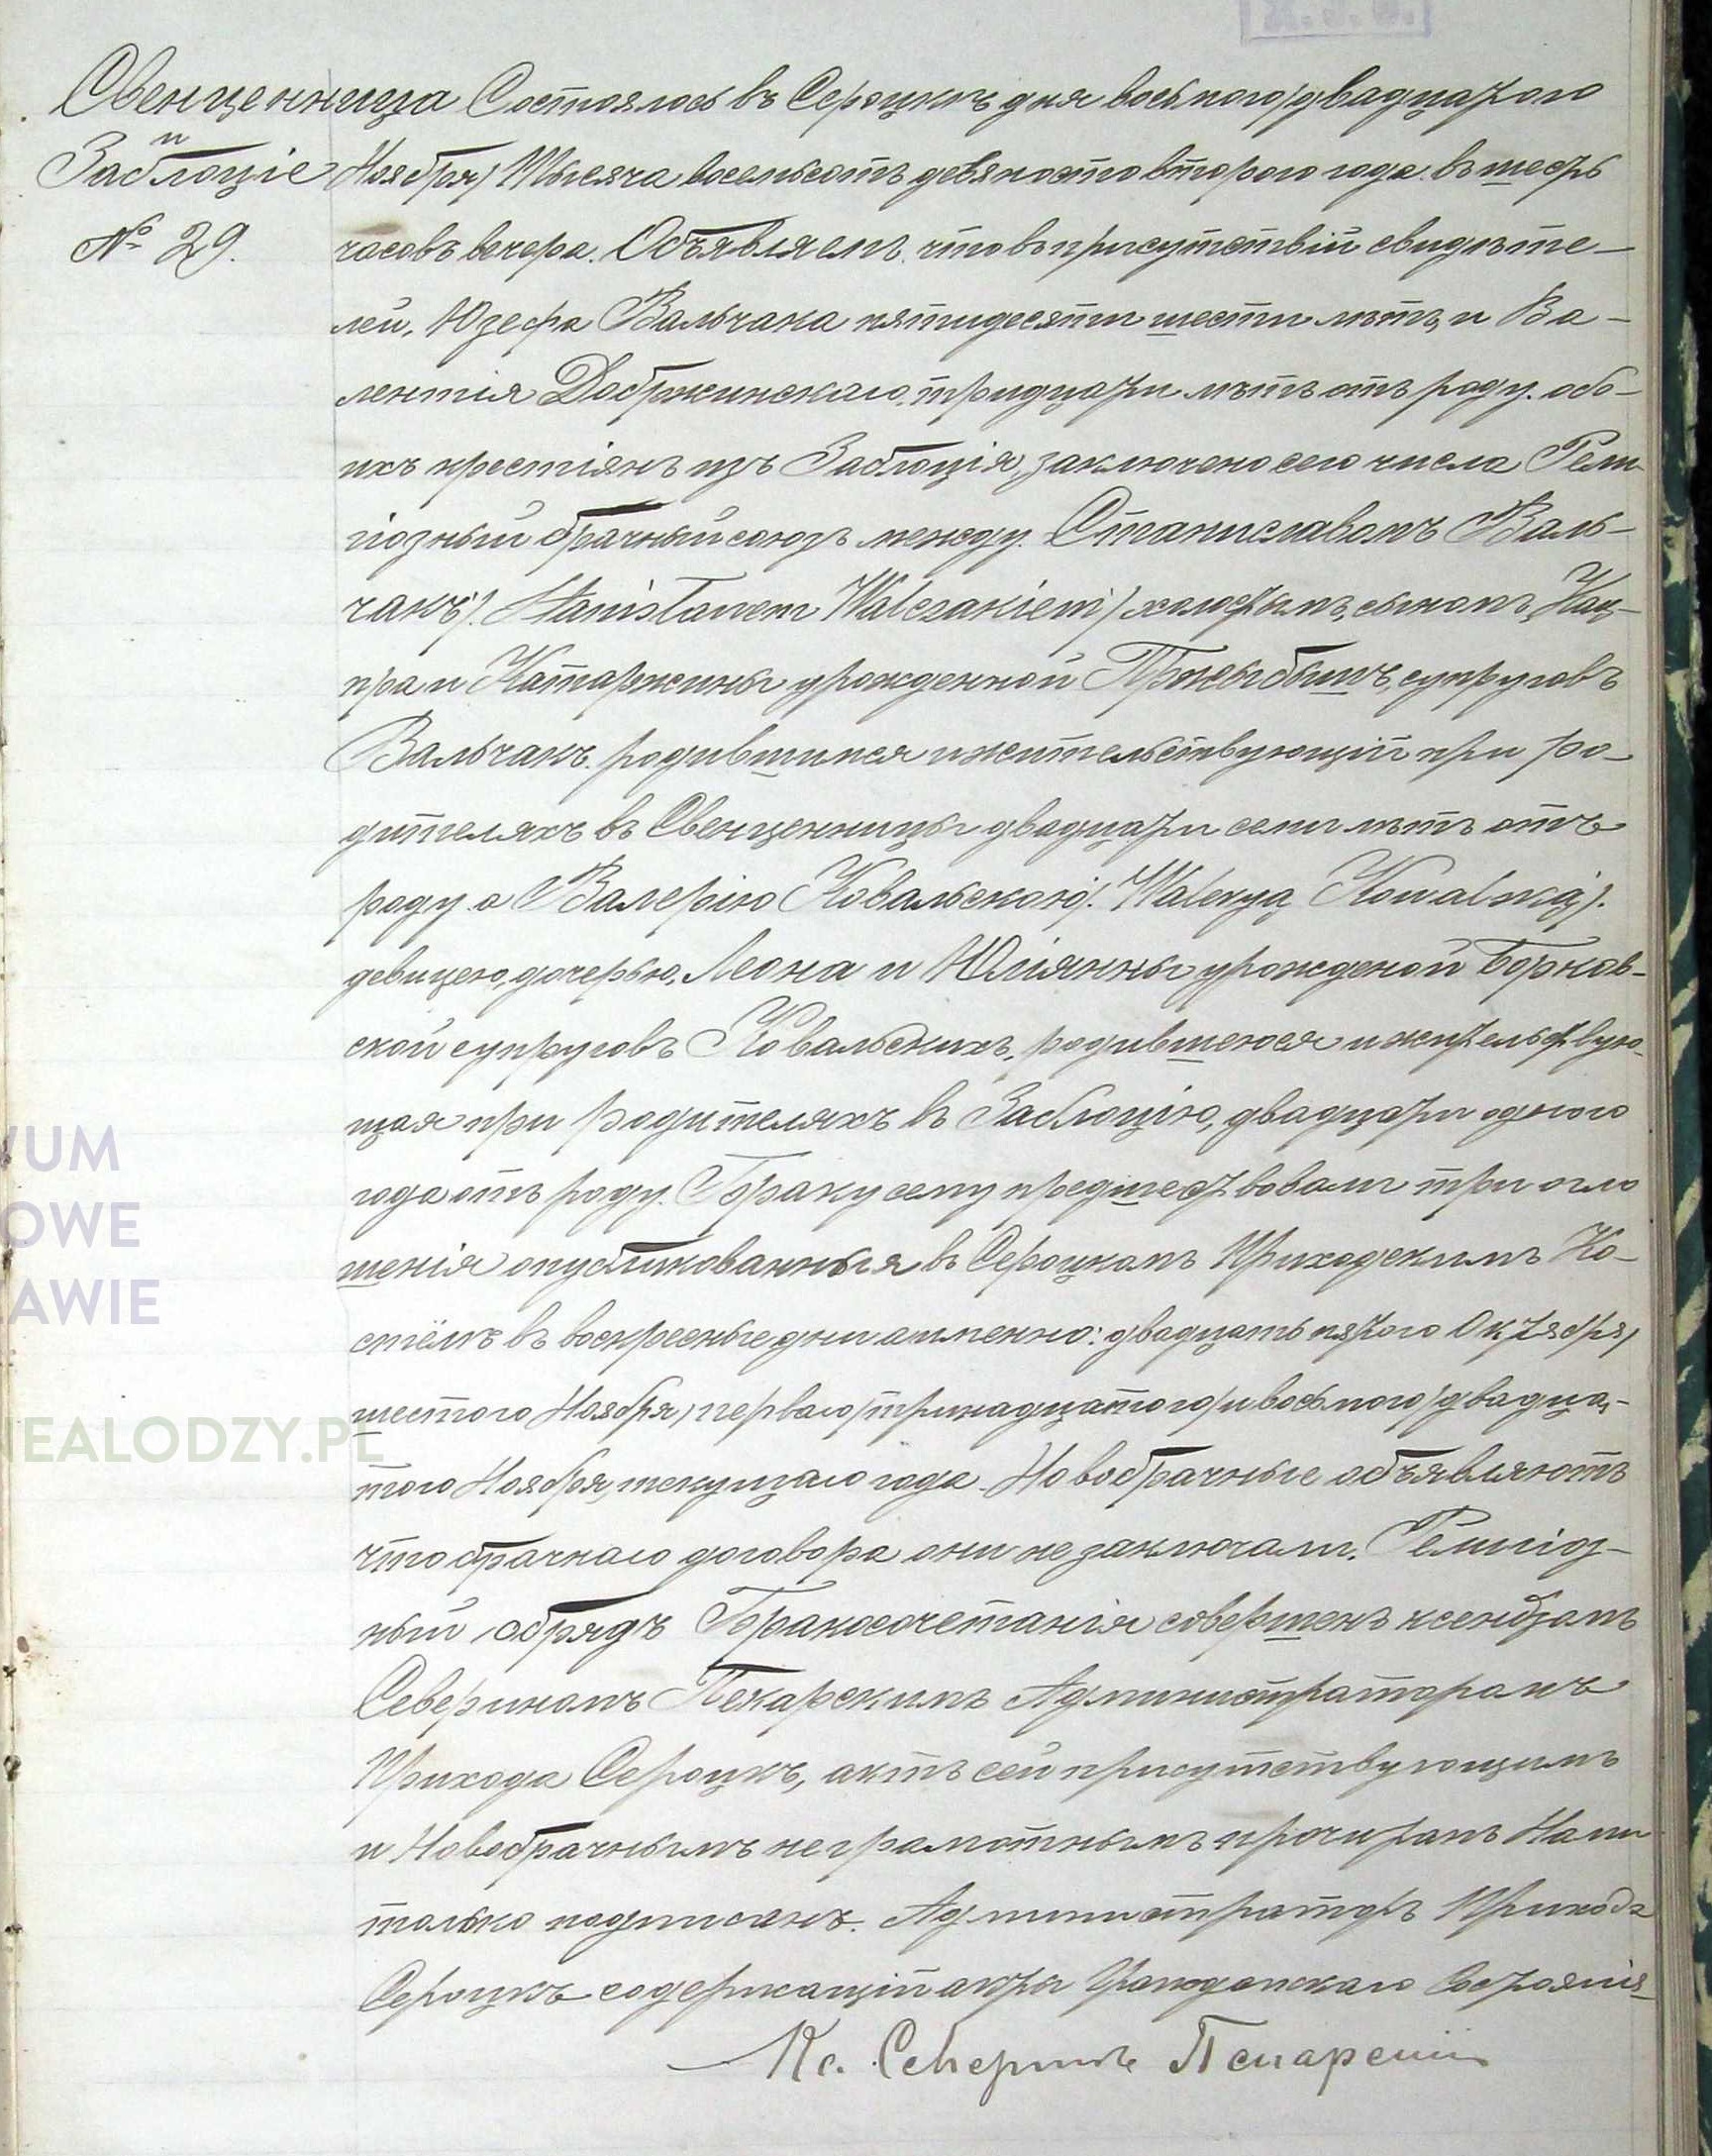 Свенценница Состоялось въ Сероцкѣ дня восьмого/двадцатого
и
Заблоціе Ноября/ Тысяча восемьсотъ девяносто второго года въ шесть
№ 29. часовъ вечера. Объявляемъ, что въ присутствіи свидѣте-
лей, Юзефа Вальчака пятидесяти шести лѣтъ, и Ва-
лентія Добржинскаго, тридцати лѣтъ отъ роду. обо-
ихъ крестіянъ изъ Заблоція, заключено сего числа Рели-
гіозный брачный союзъ между Станиславомъ Валь-
чакъ /Stanisławem Walczakiem/ холостымъ, сыномъ, Кац-
пра и Катаржины урожденной Пржыбышъ, супруговъ
Вальчакъ, родившимся и жительствующій при ро-
дителяхъ въ Свенценницы двадцати семи лѣтъ отъ
роду а Валерію Ковальскою /Waleryą Kowalską/.
девицею, дочерью, Леона и Юліянны урожденой Борков-
ской супруговъ Ковальскихъ, родившеюся и жительствую-
щая при родителяхъ въ Заблоцію, двадцати одного
года отъ роду. Браку сему предшествовали три огло
шенія опубликованныя въ Сероцкомъ Приходскимъ Ко-
стёлѣ въ воскресные дни а именно: двадцать пятого Октября/
шестого Ноября, первого/тринадцатого/ и восьмого/двадца-
того Ноября, текущаго года. Новобрачные объявляютъ
что брачнаго договора они не заключали. Религіоз-
ный обрядъ Бракосочетанія совершенъ ксендзомъ
Севериномъ Пекарскимъ Администраторомъ
Прихода Сероцкъ, актъ сей присутствующимъ
и Новобрачнымъ неграмотнымъ прочитанъ Нами
только подписанъ. Администраторъ Прихода
Сероцкъ содержащій акты Гражданскаго Состоянія
Кс. Северинъ Пекарскій
VUM
OWE
AWIE
EALODZY.PL